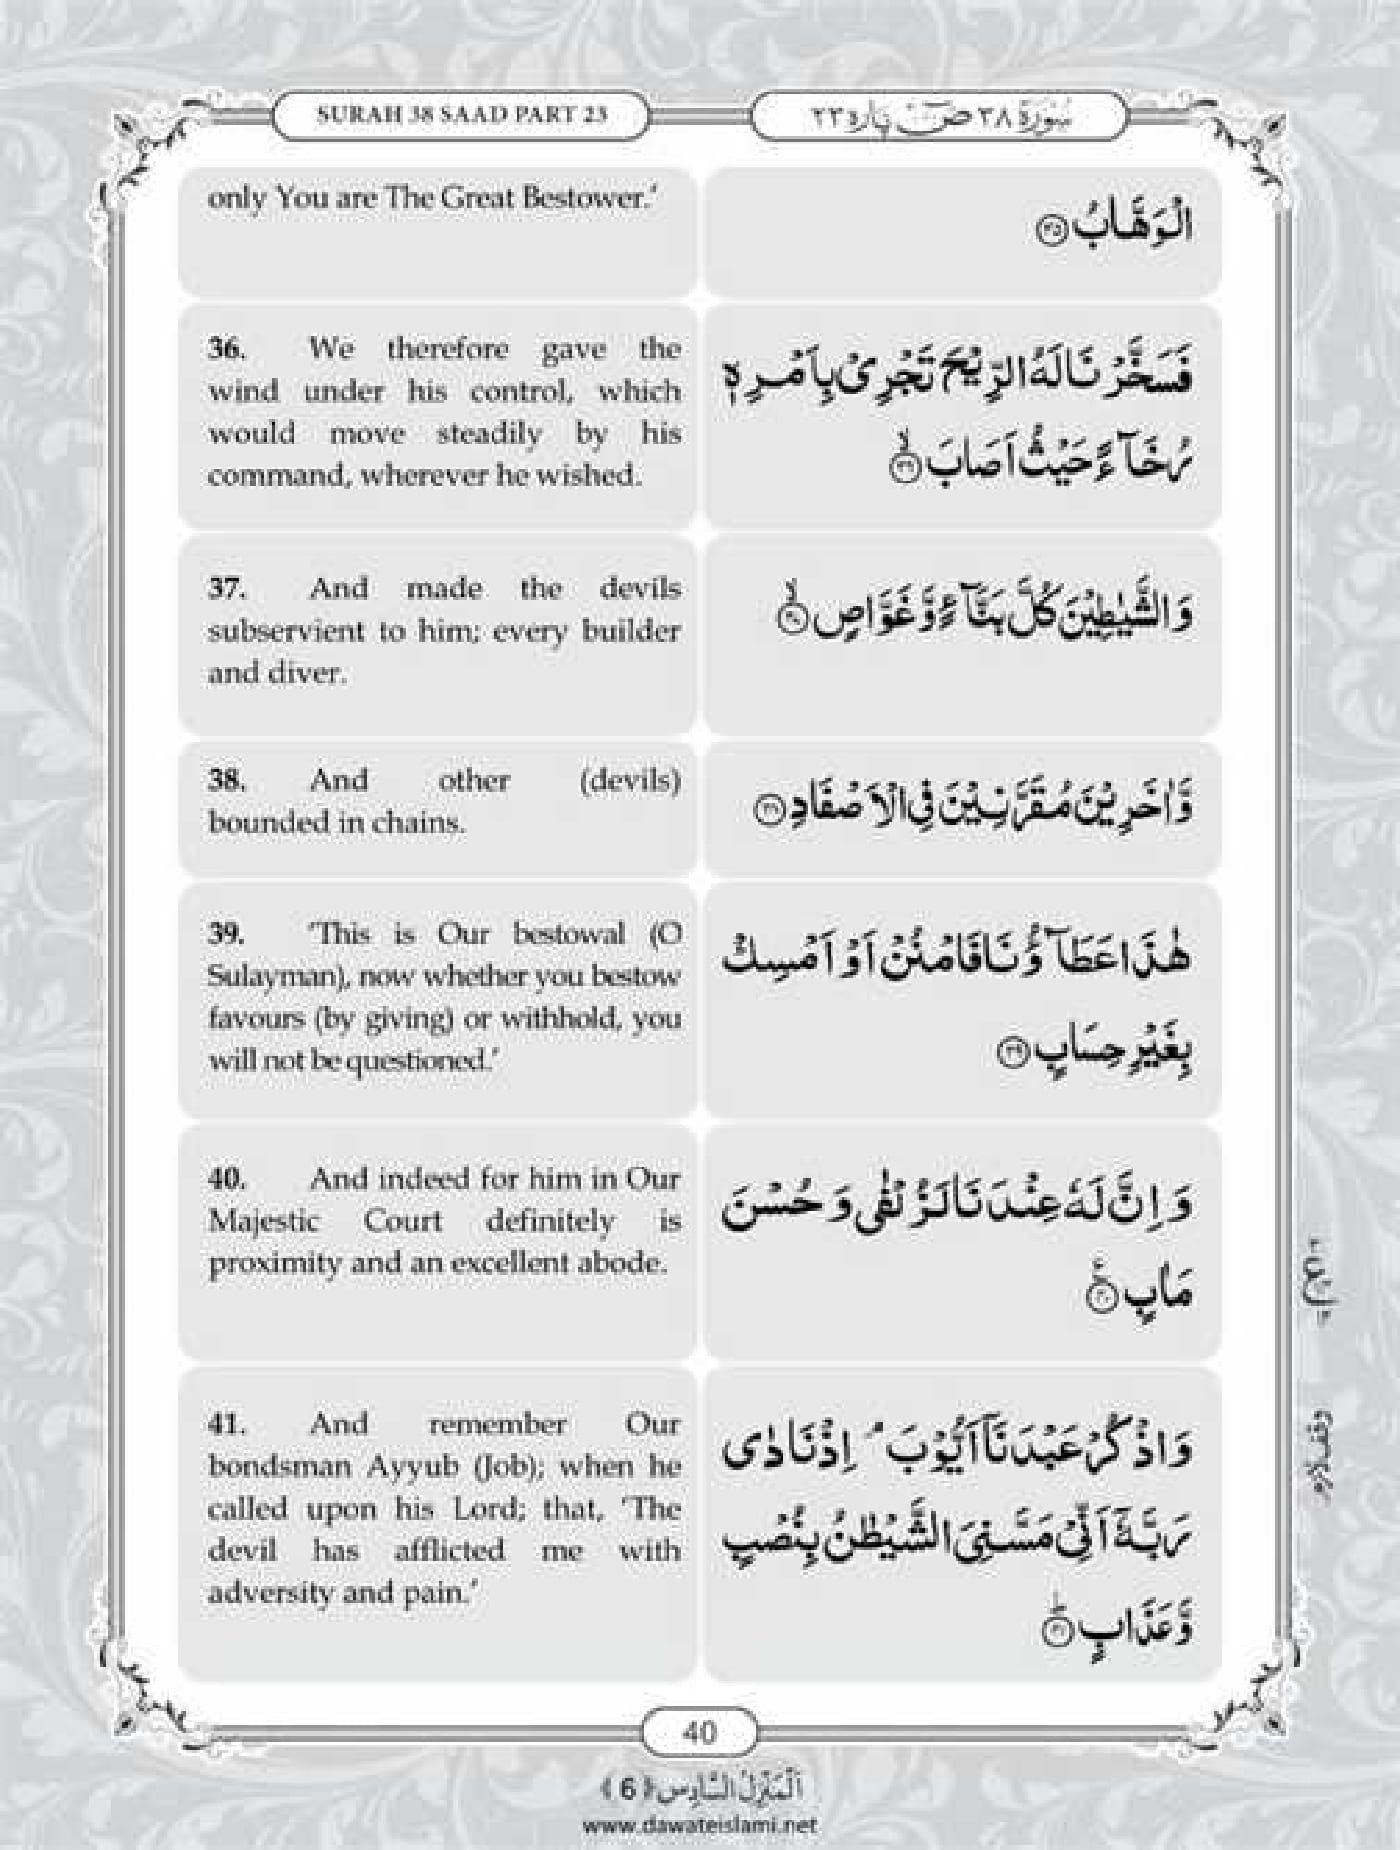 SURAH 38 SAAD PART 23
سُوْرَة ٣٨ صٓ پاره ٢٣
only You are The Great Bestower.’
الْوَهَّابُ ﴿۳۵﴾
36. We therefore gave the
wind under his control, which
would move steadily by his
command, wherever he wished.
فَسَخَّرْنَا لَهُ الرِّيْحَ تَجْرِیْ بِاَمْرِهٖ
رُخَآءً حَيْثُ اَصَابَ ﴿ۙ۳۶﴾
37. And made the devils
subservient to him; every builder
and diver.
وَالشَّيٰطِيْنَ كُلَّ بَنَّآءٍ وَّغَوَّاصٍ ﴿ۙ۳۷﴾
38. And other (devils)
bounded in chains.
وَّاٰخَرِيْنَ مُقَرَّنِيْنَ فِی الْاَصْفَادِ ﴿۳۸﴾
39. ‘This is Our bestowal (O
Sulayman), now whether you bestow
favours (by giving) or withhold, you
will not be questioned.’
هٰذَا عَطَآؤُنَا فَامْنُنْ اَوْ اَمْسِكْ
بِغَيْرِ حِسَابٍ ﴿۳۹﴾
40. And indeed for him in Our
Majestic Court definitely is
proximity and an excellent abode.
وَ اِنَّ لَهٗ عِنْدَنَا لَزُلْفٰی وَ حُسْنَ
مَاٰبٍ ﴿۴۰﴾
41. And remember Our
bondsman Ayyub (Job); when he
called upon his Lord; that, ‘The
devil has afflicted me with
adversity and pain.’
وَاذْكُرْ عَبْدَنَاۤ اَيُّوْبَ ۘ اِذْ نَادٰی
رَبَّهٗۤ اَنِّیْ مَسَّنِیَ الشَّيْطٰنُ بِنُصْبٍ
وَّعَذَابٍ ﴿ؕ۴۱﴾
وقف لازم
40
اَلْمَنْزِلُ السَّادِس ﴿6﴾
www.dawateislami.net